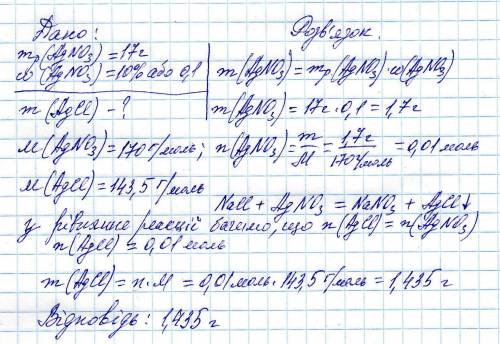 Дано: Розв'язок.
mр(AgNO₃)=17г
ω(AgNO₃)=10% або 0,1 m(AgNO₃)=mр(AgNO₃)·ω(AgNO₃)
m(AgCl) – ? m(AgNO₃)=17г·0,1=1,7г
M(AgNO₃)=170 г/моль; n(AgNO₃)=m/M=1,7г/170г/моль=0,01 моль
M(AgCl)=143,5 г/моль
NaCl + AgNO₃ = NaNO₃ + AgCl↓
У рівняння реакцій бачимо, що n(AgCl)=n(AgNO₃)
n(AgCl)=0,01 моль
m(AgCl)=n·M=0,01 моль·143,5 г/моль=1,435 г
Відповідь: 1,435 г